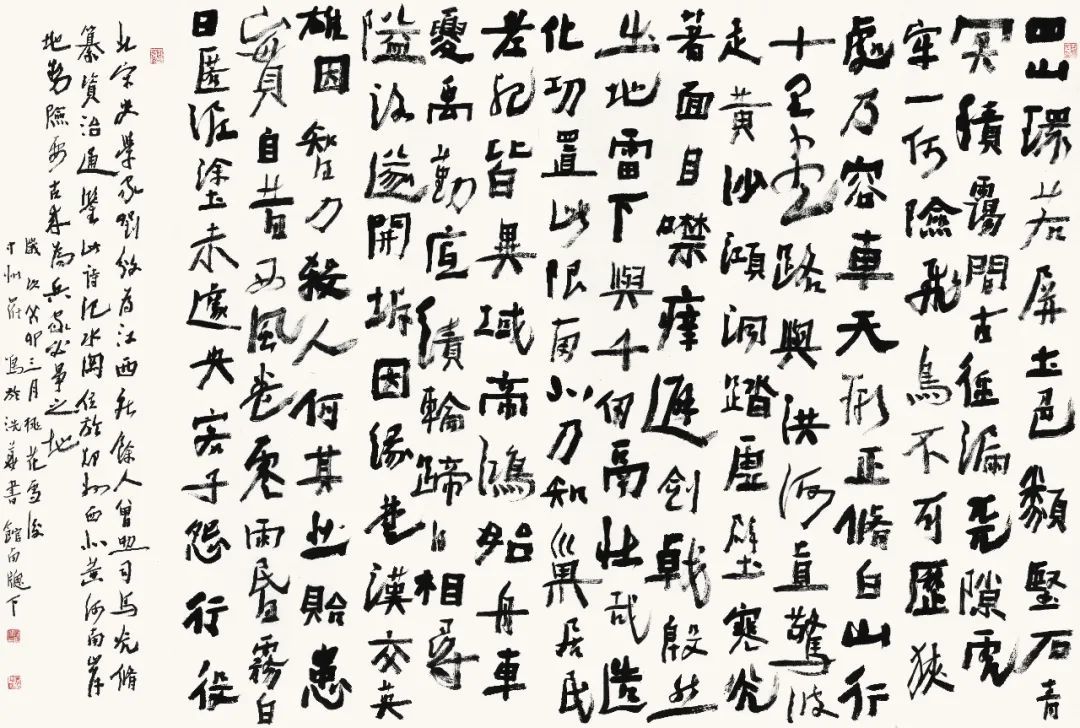 四山環若屏土邑類堅石青
冥積靄間古徑漏荒隙虎
牢一何險飛鳥不可歷狹
處乃容車天形正脩白山行
十里如堂路與洪河直驚波
走黃沙澒洞踏塵壁寒光
著面目噤瘁避劍戟殷然
出地雷下與千仞鬲壯哉造
化功置此限南北乃知巢居民
老死皆異域帝鴻始舟車
夔禹勤績輪蹄日相尋
隘設遂開坼因緣楚漢交英
雄因智力殺人何其貽患
實自昔西風卷零雨昏霧白
日匿泥塗未遽央客子怨行役
北宋史學家劉攽為江西新餘人曾與司馬光脩
纂資治通鑒此詩汜水關位於鄭州西北黃河南岸
地勢險要古來為兵家必爭之地
歲次癸卯三月桃花雪後
寫於洗書館南牕下